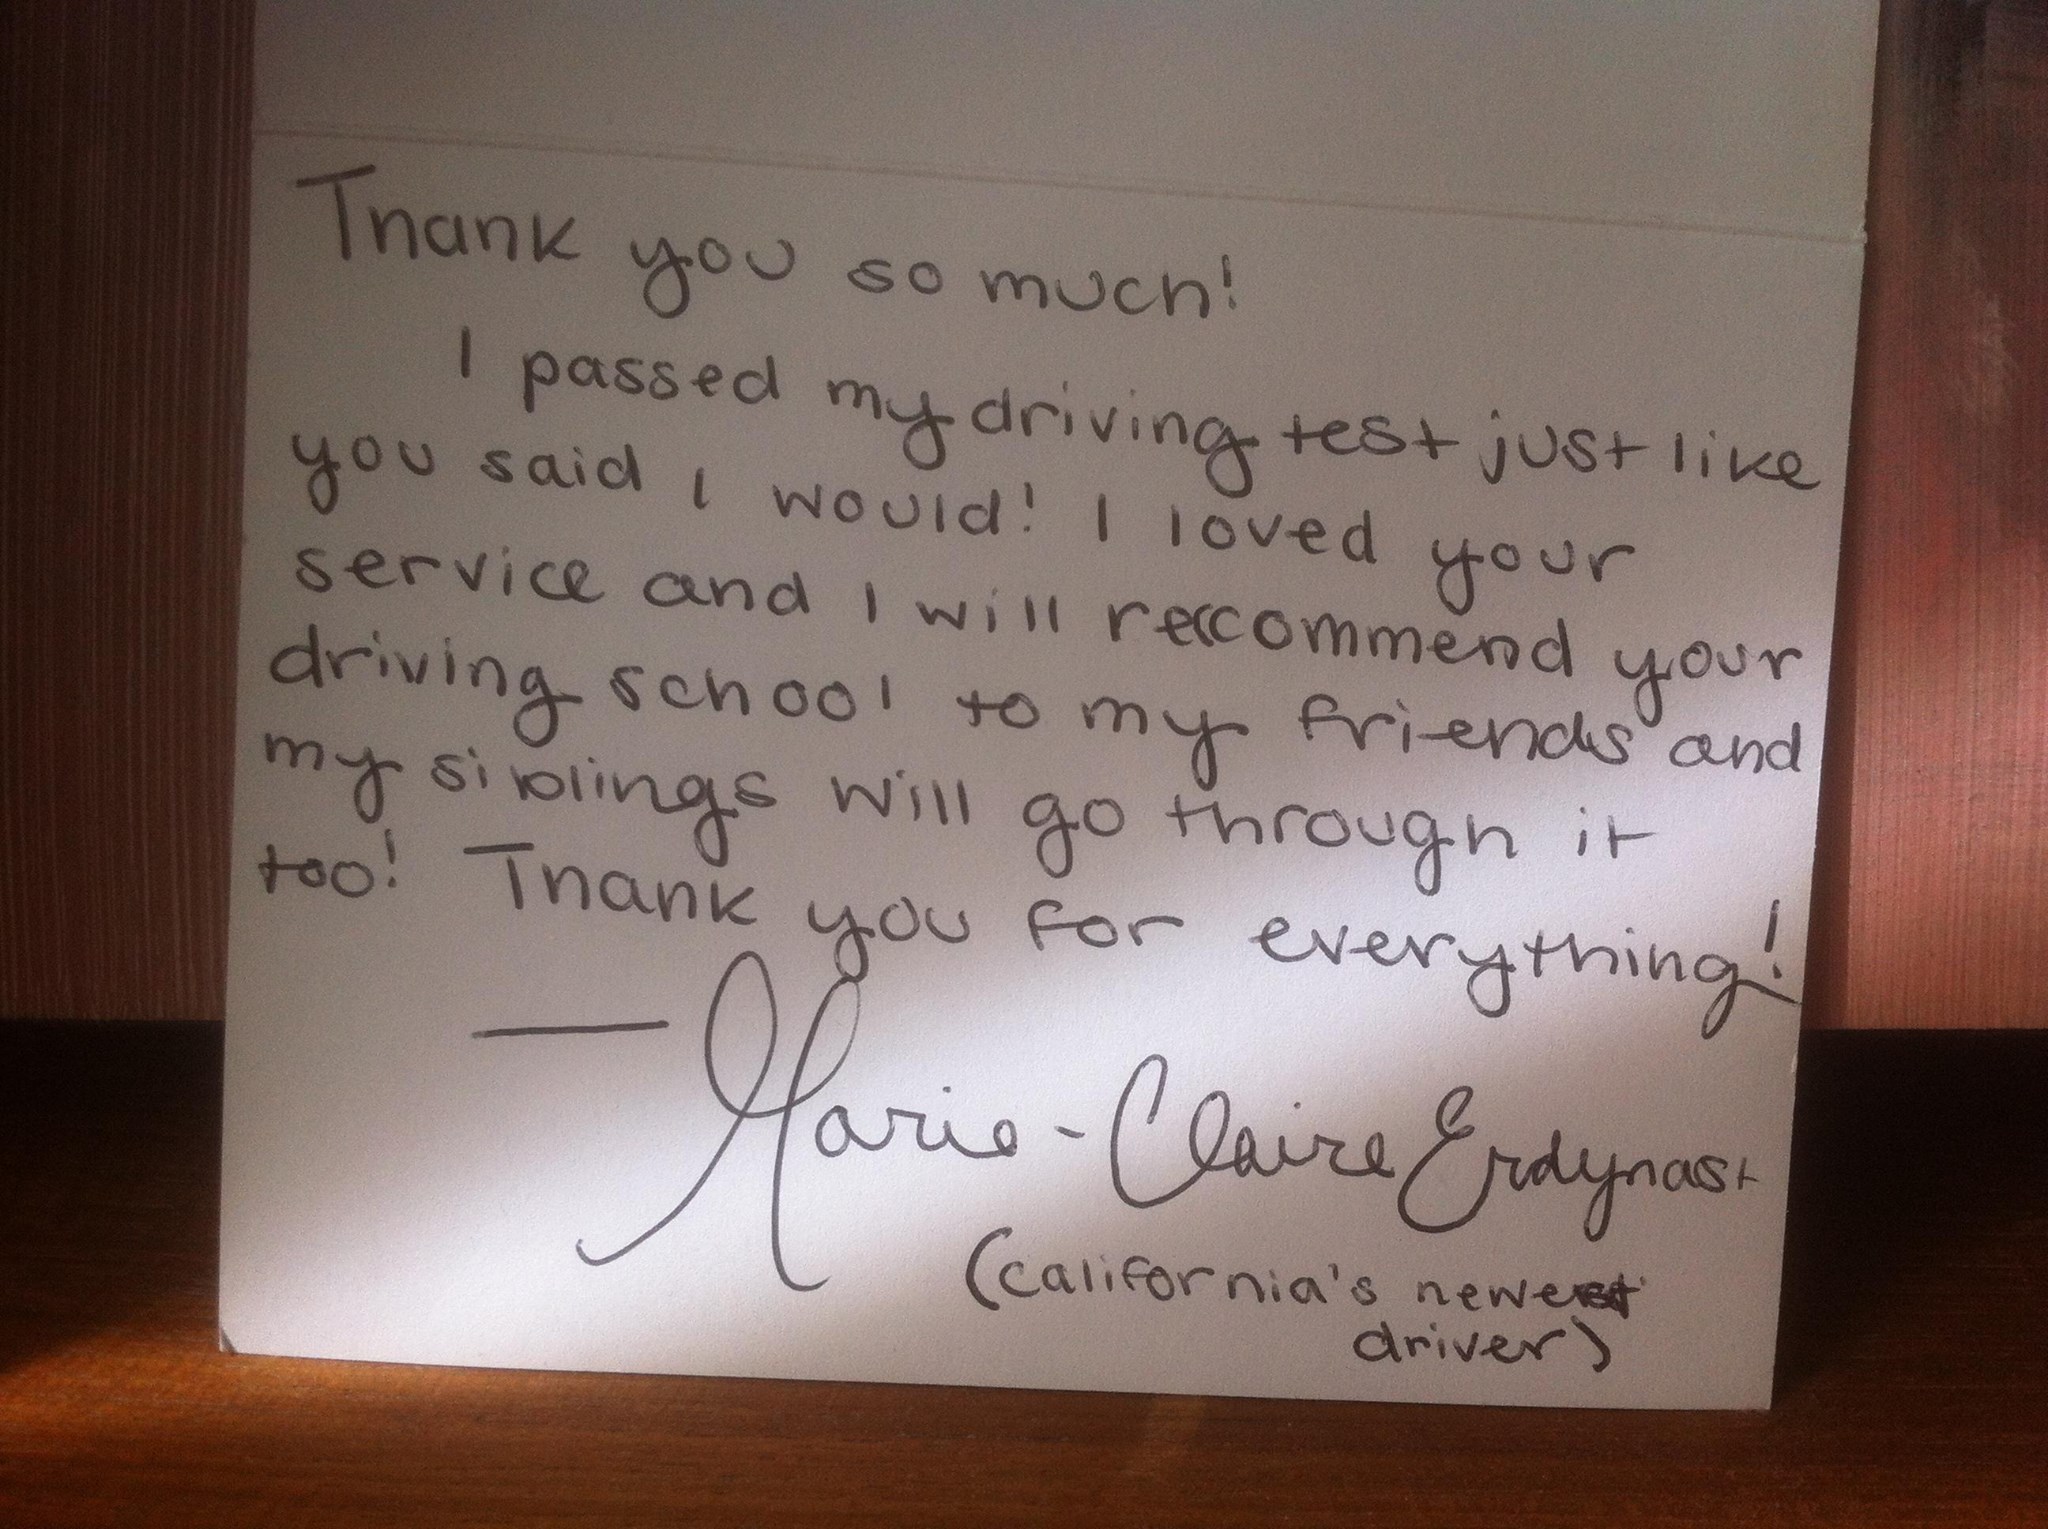 Thank you so much!
I passed my driving test just like
you said I would! I loved your
service and I will reccommend your
driving school to my friends and
my siblings will go through it
too! Thank you for everything!
— Marie-Claire Erdynast
(california's newest
driver)